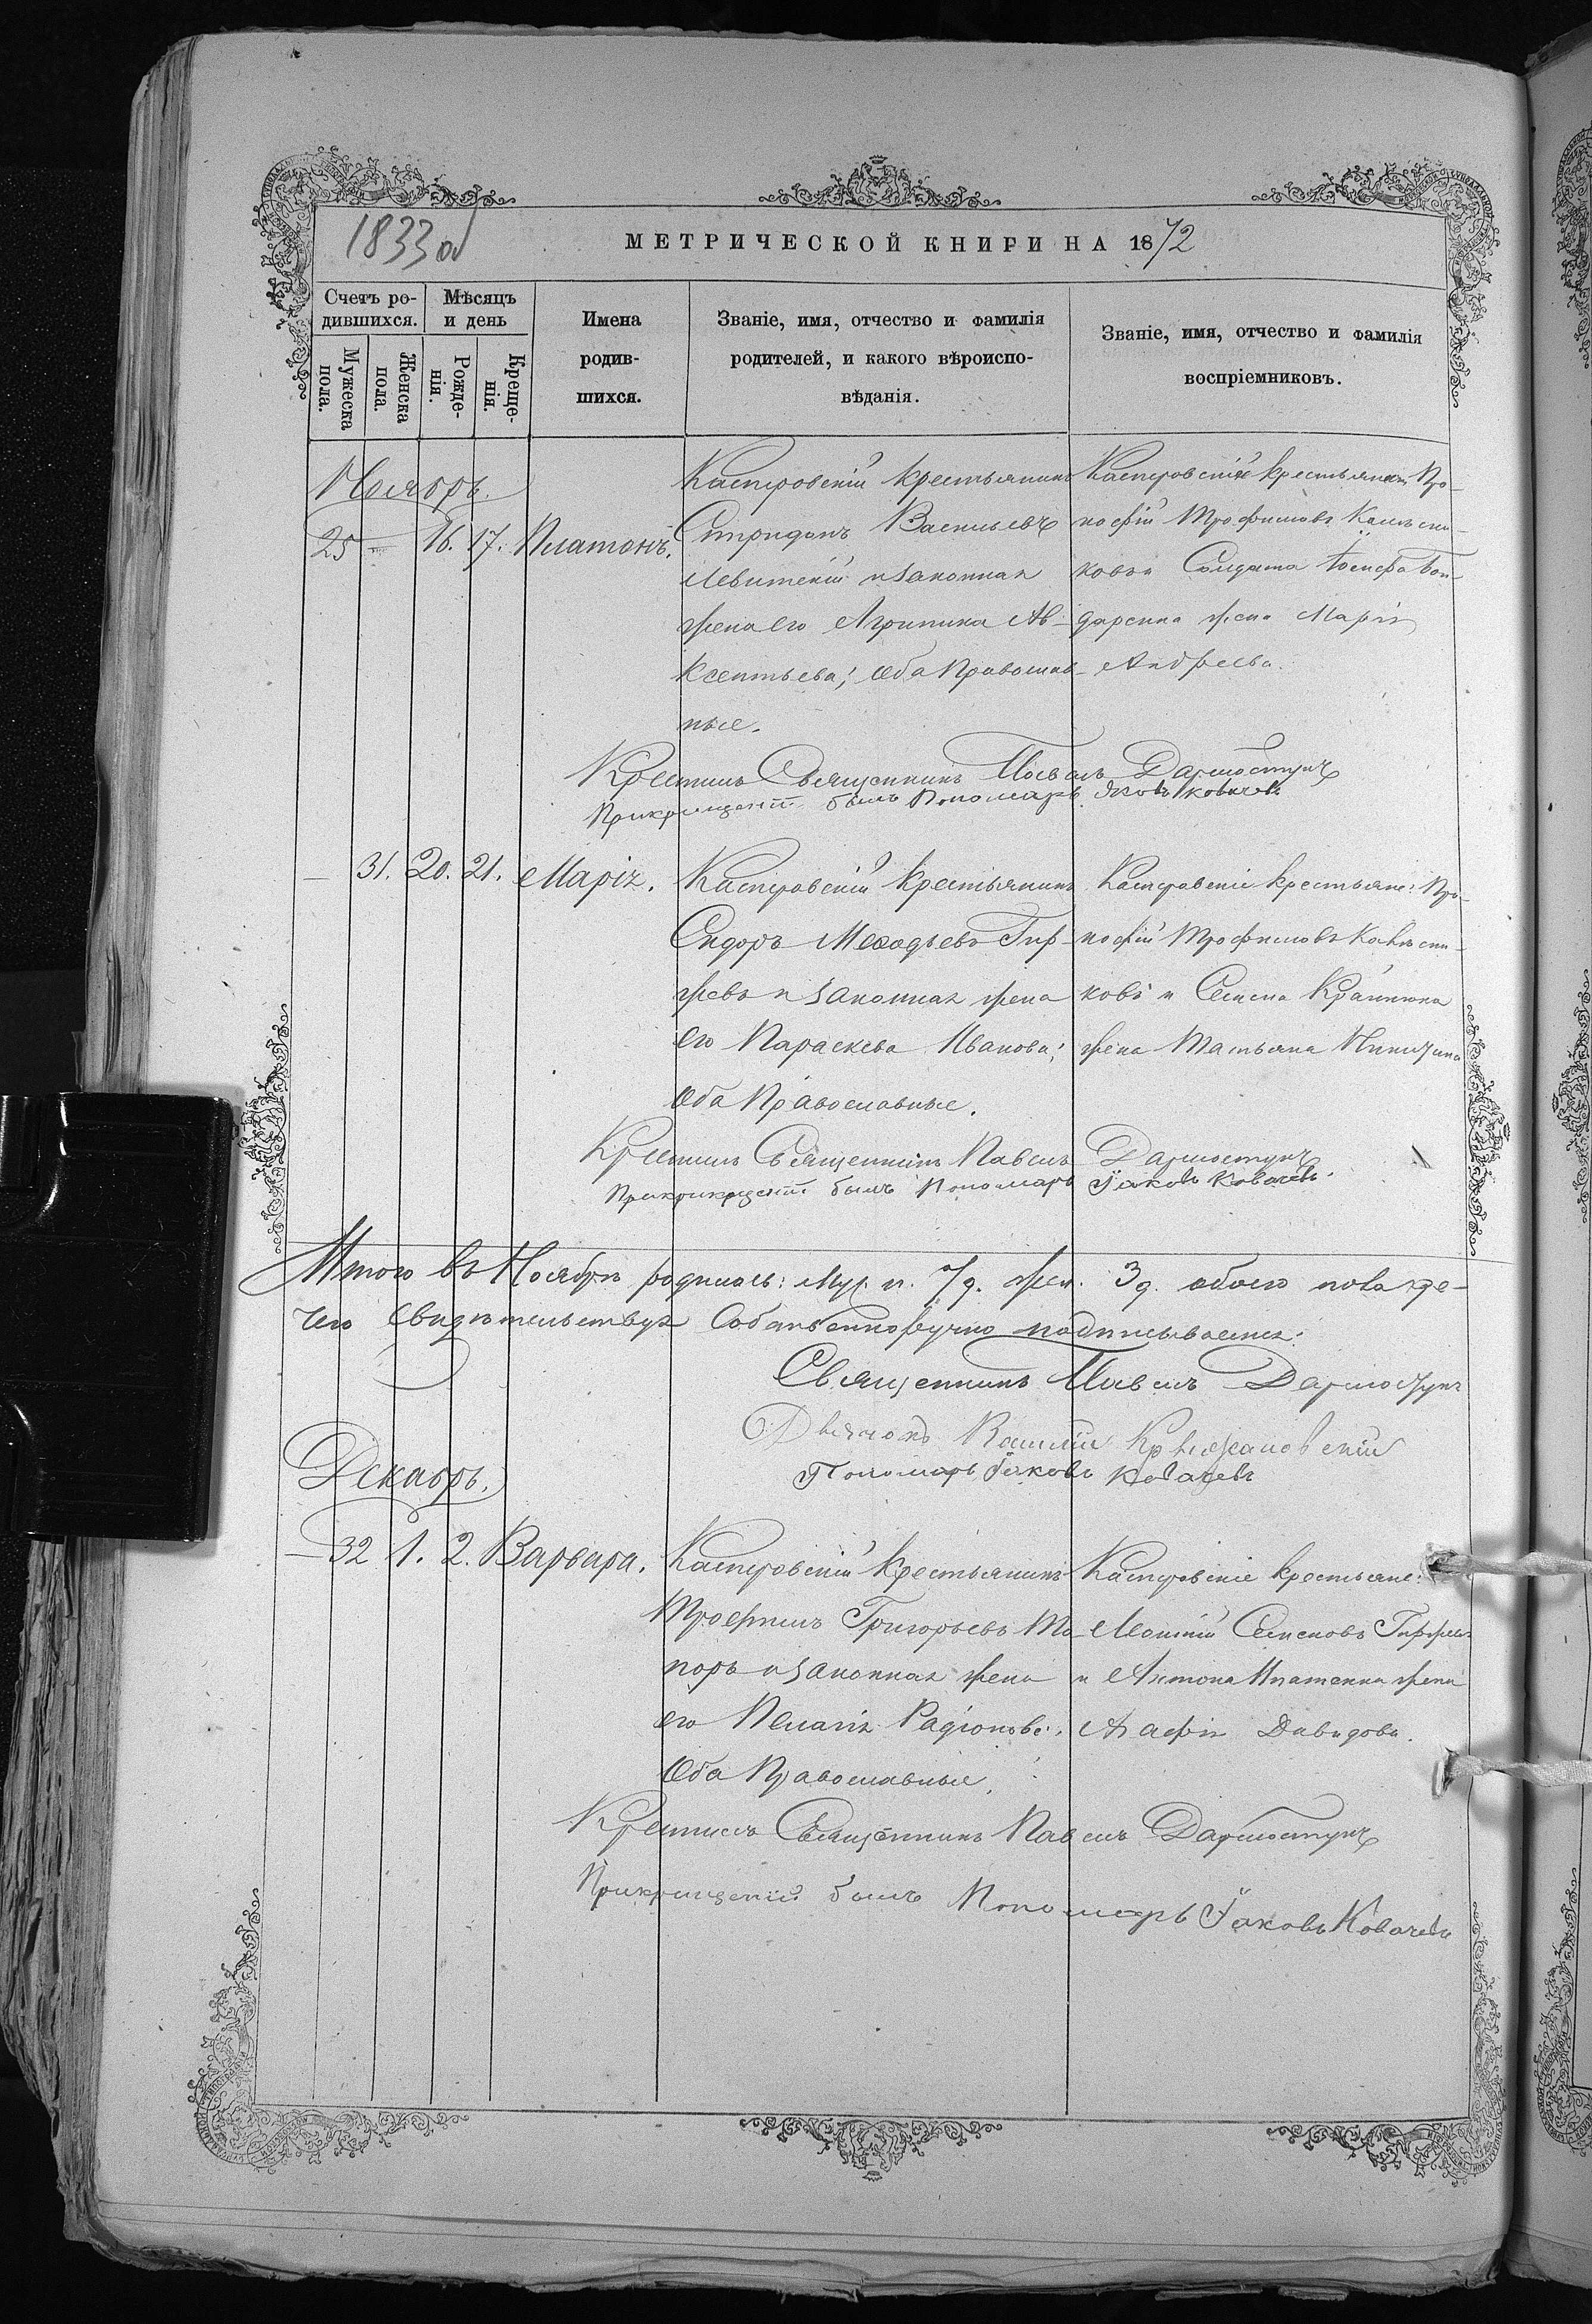 1833 об
МЕТРИЧЕСКОЙ КНИГИ НА 1872
Счетъ ро-
дившихся.
Мужеска
пола.
Женска
пола.
Мѣсяцъ
и день
Рожде-
нія.
Креще-
нія.
Имена
родив-
шихся.
Званіе, имя, отчество и фамилія
родителей, и какого вѣроиспо-
вѣданія.
Званіе, имя, отчество и фамилія
воспріемниковъ.
Ноябрь.
25 — 16. 17. Платонъ.
Каспровскій крестьянинъ
Спридонъ Васильевъ
Левитскій и законная
жена его Агрипина Ав-
ксентьева; оба Православ-
ные.
Каспровскіе крестьяне: Про-
кофій Трофимовъ Колѣсни-
ковъ и Солдата Іосифа Бон-
даренка жена Марія
Андреева.
Крестилъ Священникъ Павелъ Дармостукъ
При крещеніи былъ Пономарь Яковъ Ковачевъ
— 31. 20. 21. Марія.
Каспровскій крестьянинъ
Сидоръ Меѳодьевъ Гир-
жевъ и законная жена
его Параскева Иванова;
оба Православные.
Каспровскіе крестьяне: Про-
кофій Трофимовъ Колѣсни-
ковъ и Семена Крайнюка
жена Татьяна Никитина
Крестилъ Священникъ Павелъ Дармостукъ
былъ Пономарь Іаковъ Ковачевъ.
Итого въ Ноябрѣ родилось: Муж. п. 7 д. жен. 3 д. обоего пола
чемъ свидѣтельствуя Собственноручно подписываемся:
Священникъ Павелъ Дармостукъ
Дьячокъ Василій Крыжановскій
Пономарь Іаковъ Ковачевъ
Декабрь.
— 32 1. 2. Варвара.
Каспровскій крестьянинъ
Трофимъ Григорьевъ То-
поръ и законная жена
его Пелагія Радіонова;
оба Православные.
Каспровскіе крестьяне:
Леонтій Семеновъ Гиржевъ
и Антона Ипатенка жена
Агафія Давидова.
Крестилъ Священникъ Павелъ Дармостукъ
При крещеніи былъ Пономарь Іаковъ Ковачевъ